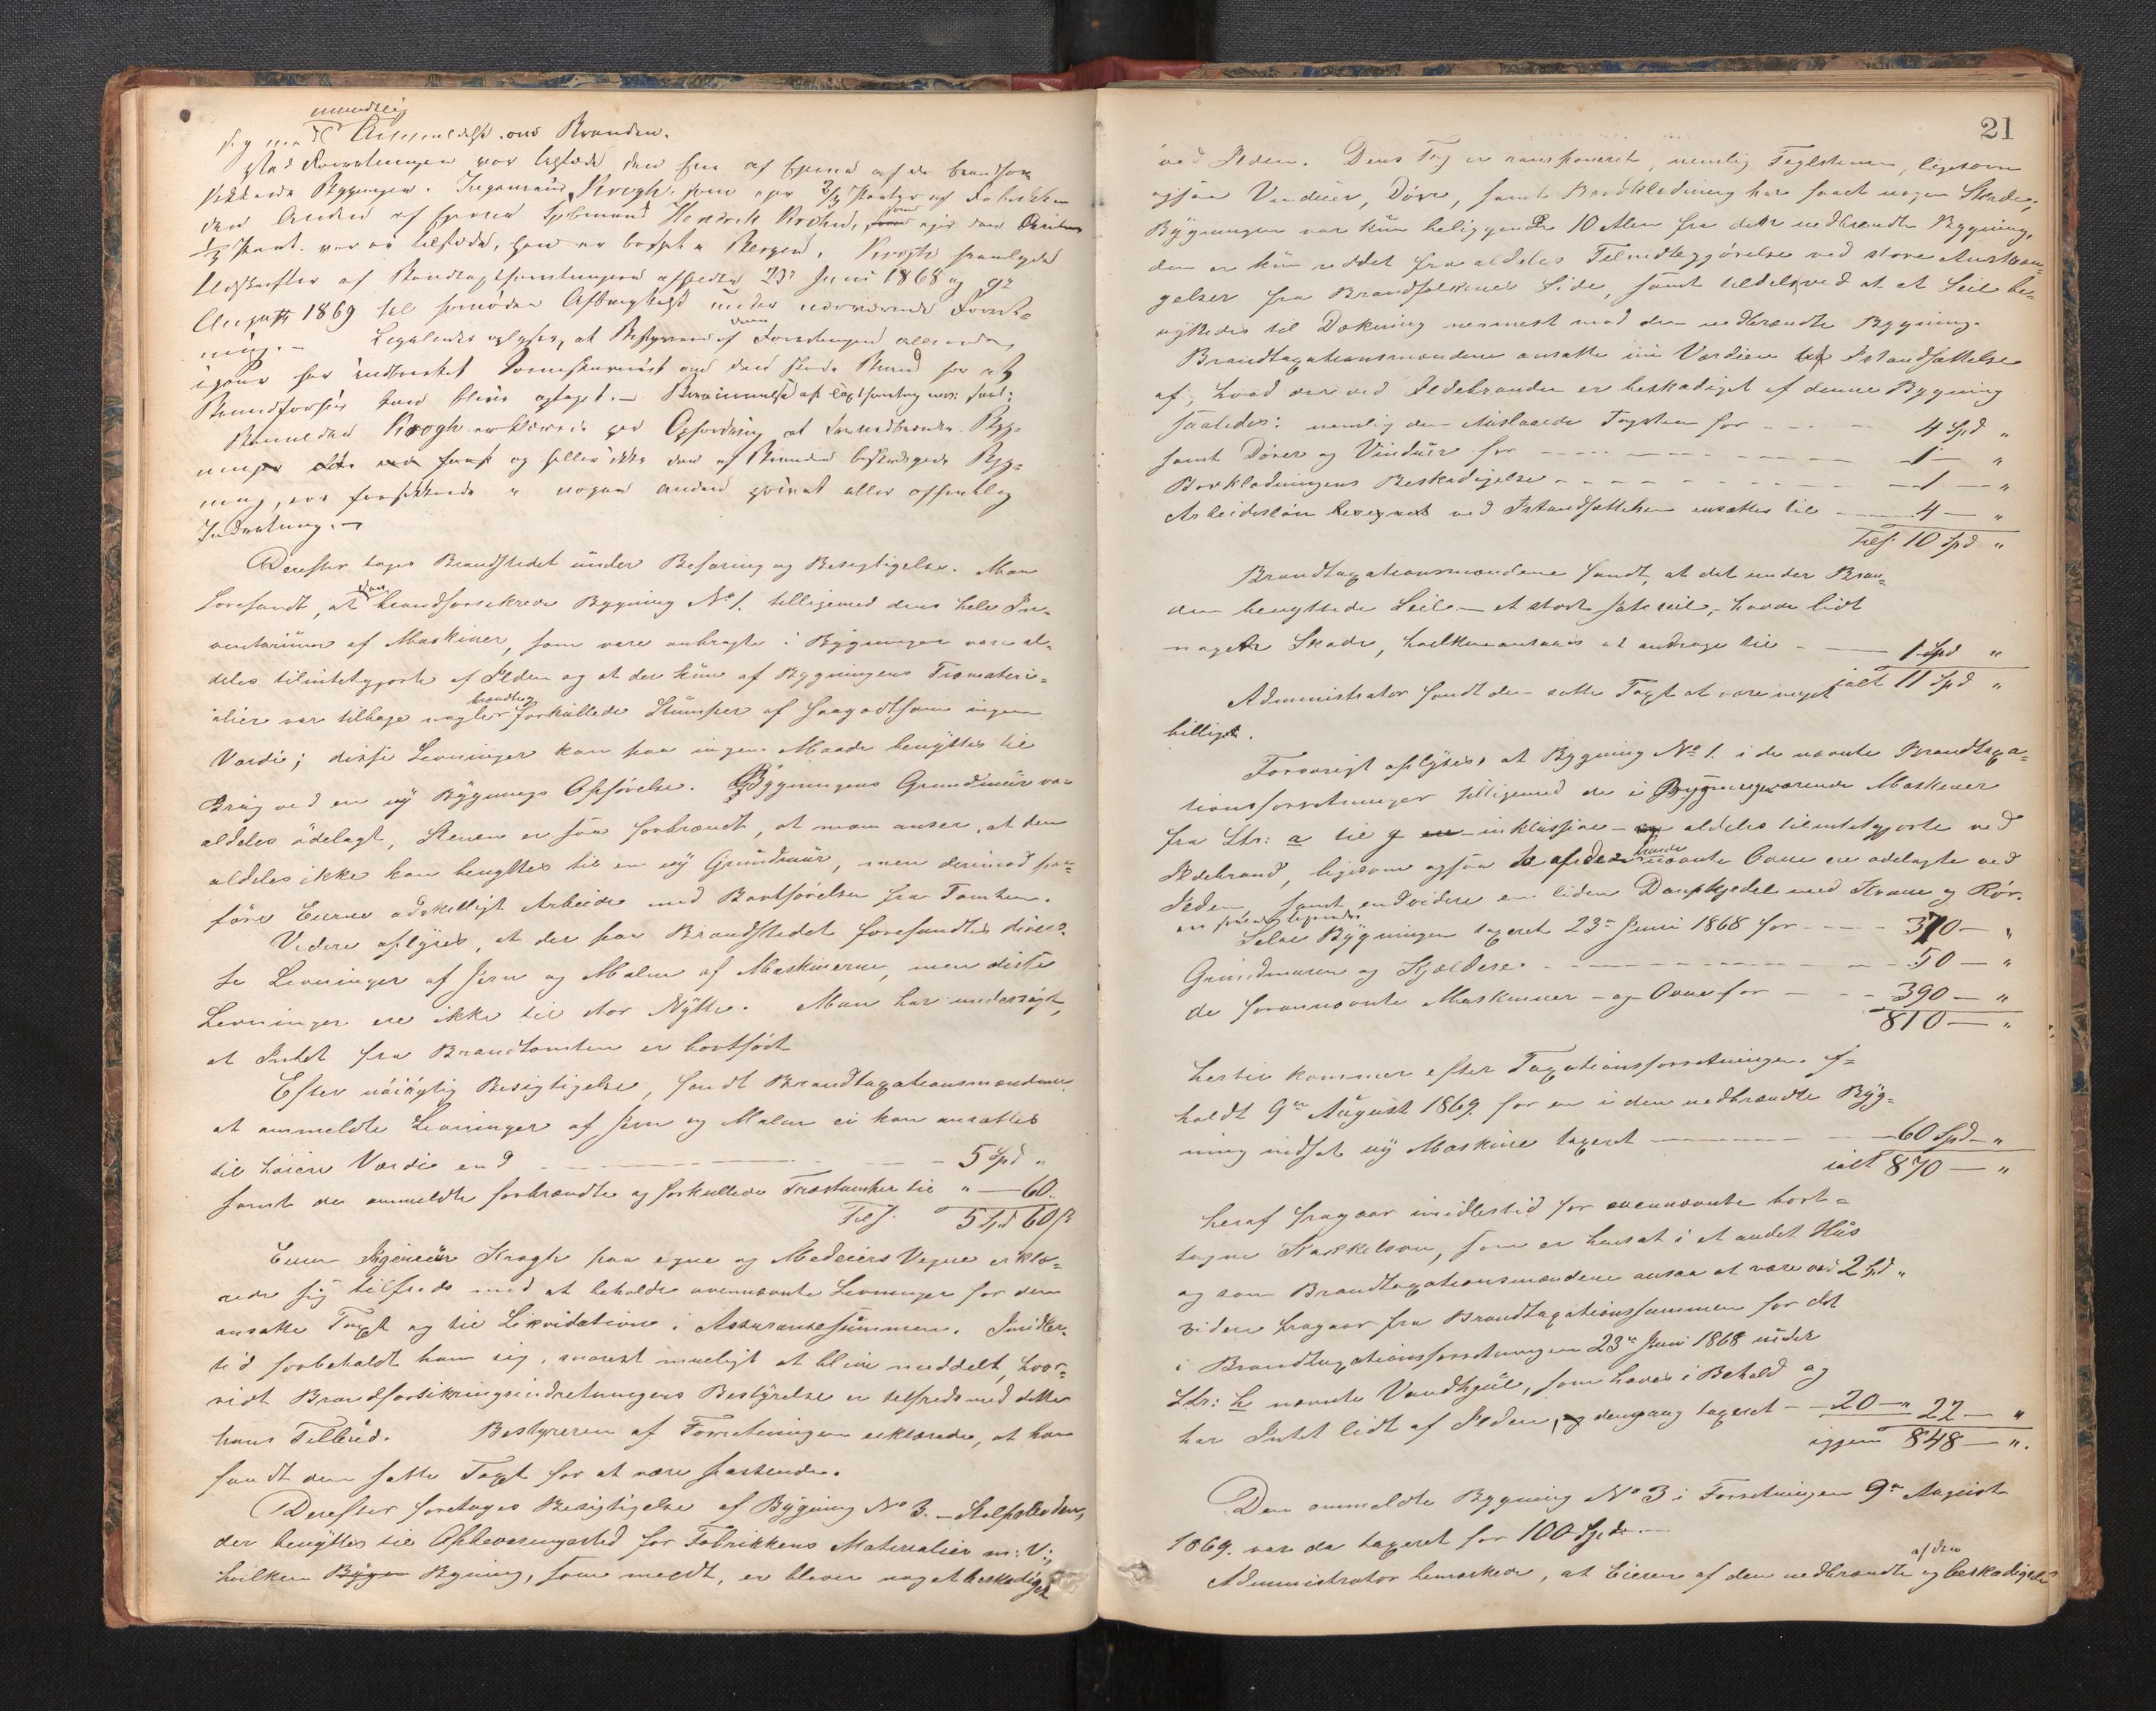 mundtlig
sig med Anmeldelse om Branden.
Ved Forretningen var tilstede den Ene af Eierne af de brandfor-
sikkrede Bygninger. Ingenieur Krogh, som ejer 2/3 Parter af Fabrikken
den Anden af Eierne Hendrik som ejer den Anden
1/3 Part. var ei tilstede, han er bosat i Bergen. Krogh fremlagde
Udskrifter af Brandtaxtforretningerne afholdte 23de Juni 1868 og 9de
August 1869 til fornøden Afbenyttelse under nærværende Forret-
ning. – Legaliter oplyses, at Bestyreren af denne Forretningen allerede
igaar har indkaldt om den skede Brand for at
Brandforhør kan blive optaget. –
Krogh erklærede paa Opfordring at den nedbrændte Byg-
ning og heller ikke den af Branden beskadigede Byg-
ning, er forsikkrede i nogen anden privat eller offentlig
Indretning. –
Derefter toges Brandstedet under Befaring og Besigtigelse. Man
forefandt, at den brandforsikrede Bygning No 1. tilligemed dens hele In-
ventarium af Maskiner, som vare anbragte i Bygningen vare al-
deles tilintetgjorte af Ilden og at der kun af Bygningens Træmateri-
alier var tilbage nogle brændte forkullede Stumper af saagodtsom ingen
Værdi; disse Levninger kan paa ingen Maade benyttes til
Brug ved en ny Bygnings Opførelse. Bygningens Grundmuur var
aldeles ødelagt, Stenene er saa forbrændt, at man anser, at den
aldeles ikke kan benyttes til en ny Grundmuur, men derimod for-
føre Eierne adskilligt Arbeide med Bortførelsen fra Tomten.
Videre oplyses, at der paa Brandstedet forefandtes diver-
se Levninger af Jern og Malm af Maskinerne, men disse
Levninger ere ikke til stor Nytte. Man har undersøgt,
at Intet fra Brandtomten er bortført
Efter nøiagtig Besigtigelse, fandt Brandtaxationsmændene
at ommeldte Levninger af Jern og Malm ei kan ansættes
til høiere Værdi end – – – 5 Spd "
samt de ommeldte forbrændte og forkullede Træstumper til " – 60.
Tils. 5 Spd 60 ß
Eieren Ingenieur Krogh paa egne og Medeiers Vegne erklæ-
rede sig tilfreds med at beholde ovennævnte Levninger for den
ansatte Taxt og til Likvidation i Assurancesummen. Imidler-
tid forbeholdt han sig, snarest mueligt at blive meddelt, hvor-
vidt Brandforsikringsindretningens Bestyrelse er tilfreds med dette
hans Tilbud. Bestyreren af Forretningen erklærede, at han
fandt den satte Taxt for at være passende.
Derefter foretoges Besigtigelse af Bygning No 3. –
der benyttes til Opbevaringssted for Fabrikkens Materialier m: V:,
hvilken Bygen Bygning, som meldt, er bleven noget beskadiget
21
ved Ilden. Dens Tag er ramponeret, nemlig Teglstenen, ligesom
ogsaa Vinduer, Døre, samt Bordklædning har faaet nogen Skade;
Bygningen var kun beliggende 10 Alen fra den nedbrændte Bygning,
den er kun reddet fra aldeles Tilintetgjørelse ved store Anstræn-
gelser fra Brandfolkenes Side, samt tildels ved at et Seil be-
nyttedes til Dækning nærmest mod den nedbrændte Bygning.
Brandtaxationsmændene ansatte nu Værdien ved Istandsættelse
af, hvad der ved Ildebranden er beskadiget af denne Bygning
saaledes: nemlig den Tagsten for – – – 4 Spd "
samt Dører og Vinduer for – – – 1 – "
Bordklædningens Beskadigelse – – – 1 – "
Arbeidsløn beregnet ved Istandsættelsen ansattes til – 4 – "
Tils. 10 Spd "
Brandtaxationsmændene fandt, at det under Bran-
den benyttede Seil – et stort – havde lidt
nogen Skade, hvilken ansaaes at andrage til – – 1 Spd "
ialt 11 Spd "
Administrator fandt den satte Taxt at være meget
billigt.
Forøvrigt oplyses, at Bygning No 1. i de nævnte Brandtaxa-
tionsforretninger tilligemed de i Bygningen værende Maskiner
fra Ltr: a til g – inklusive – aldeles tilintetgjorte ved
Ildebrand, ligesom ogsaa to af de nævnte Ovne ere ødelagte ved
Ilden, samt endvidere en liden Dampkjedel med Krane og Rør.
Selve Bygningen taxeret 23de Juni 1868 for – – – 370 – "
Grundmuren og Kjældere – – – 50 – "
de forannævnte Maskiner – og Ovne for – – – 390 – "
810 – "
hertil kommer efter Taxationsforretningen af-
holdt 9de August 1869 for en i den nedbrændte Byg-
ning indsat ny Maskine taxeret – – – 60 Spd – "
ialt 870 – "
heraf fragaar imidlertid for ovennævnte bort-
tagne Kakkelovn, som er hensat i et andet Hus
og som Brandtaxationsmændene ansaa at være værd 2 Spd "
videre fragaar fra Brandtaxationssummen for det
i Brandtaxationsforretningen 23de Juni 1868 under
Ltr: h nævnte Vandhjul, som haves i Behold og
har Intet lidt af Ilden, og dengang taxeret – 20 – " 22 – "
igjen 848 – ".
Den ommeldte Bygning No 3 i Forretningen 9de August
1869. var da taxeret for 100 Spd. –
Administrator bemærkede, at Eieren af den nedbrændte og af den beskadigede